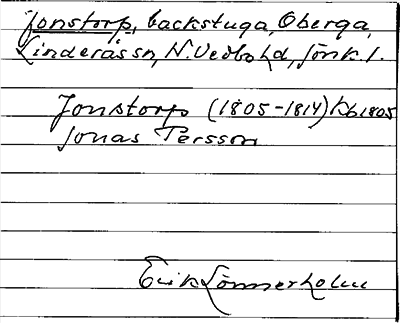 Jonstorp, backstuga, Öberga,
Linderås sn, N. Vedbo hd, Jönk. l.
Jonstorp (1805-1814) Kb 1805
Jonas Persson
Erik Lönnerholm